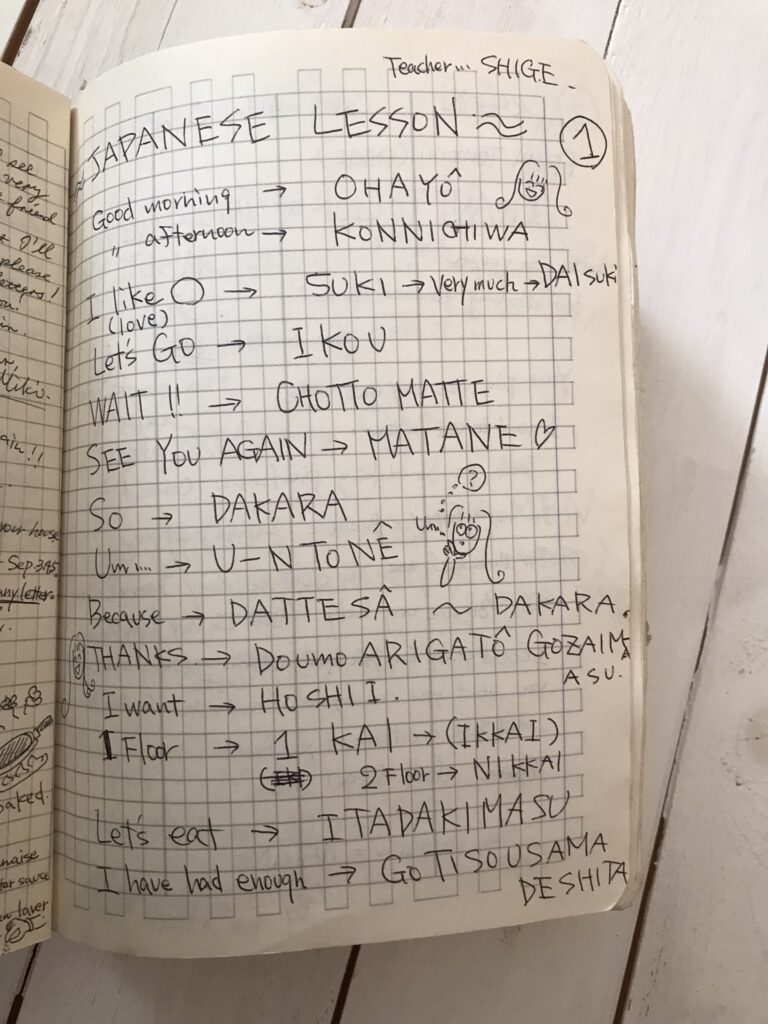 Teacher... SHIGE.
~JAPANESE LESSON~ ①
Good morning → OHAYÔ
" afternoon → KONNICHIWA
I like ○ → SUKI → Very much → DAIsuki
(love)
Let's GO → IKOU
WAIT!! → CHOTTO MATTE
SEE YOU AGAIN → MATANE ♡
?
So → DAKARA
Um...
Um.... → U-N TONÊ
Because → DATTESÂ ~ DAKARA.
THANKS → DOUMO ARIGATÔ GOZAIM
ASU.
I want → HOSHII.
1 Floor → 1 KAI → (IKKAI)
2 Floor → NIKKAI
Let's eat → ITADAKIMASU
I have had enough → GOTISOUSAMA
DESHITA
see
very
friend
I'll
please
letters!
Miki.
again!!
your house
Sep 3.95.
any letter
baked.
naise
for sauce
laver